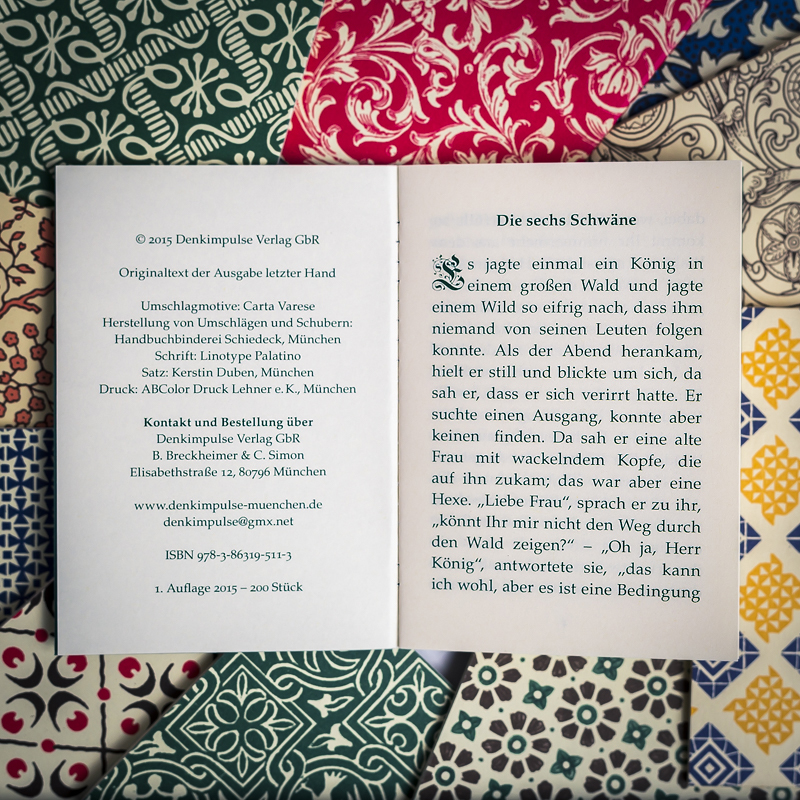 © 2015 Denkimpulse Verlag GbR
Originaltext der Ausgabe letzter Hand
Umschlagmotive: Carta Varese
Herstellung von Umschlägen und Schubern:
Handbuchbinderei Schiedeck, München
Schrift: Linotype Palatino
Satz: Kerstin Duben, München
Druck: ABColor Druck Lehner e. K., München
Kontakt und Bestellung über
Denkimpulse Verlag GbR
B. Breckheimer & C. Simon
Elisabethstraße 12, 80796 München
www.denkimpulse-muenchen.de
denkimpulse@gmx.net
ISBN 978-3-86319-511-3
1. Auflage 2015 – 200 Stück
Die sechs Schwäne
Es jagte einmal ein König in
einem großen Wald und jagte
einem Wild so eifrig nach, dass ihm
niemand von seinen Leuten folgen
konnte. Als der Abend herankam,
hielt er still und blickte um sich, da
sah er, dass er sich verirrt hatte. Er
suchte einen Ausgang, konnte aber
keinen finden. Da sah er eine alte
Frau mit wackelndem Kopfe, die
auf ihn zukam; das war aber eine
Hexe. „Liebe Frau“, sprach er zu ihr,
„könnt Ihr mir nicht den Weg durch
den Wald zeigen?“ – „Oh ja, Herr
König“, antwortete sie, „das kann
ich wohl, aber es ist eine Bedingung